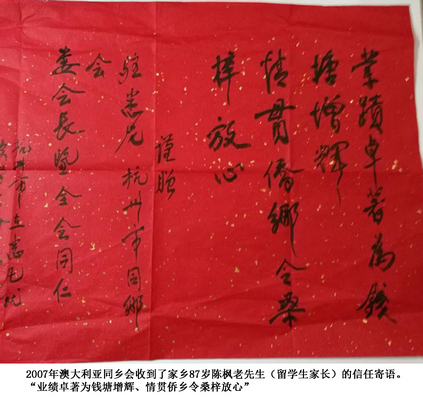 業蹟卓著為錢
塘增輝
情貫僑鄉令桑
梓放心
謹贈
駐悉尼杭州市同鄉
会
娄会長暨全会同仁
杭州市
2007年澳大利亚同乡会收到了家乡87岁陈枫老先生（留学生家长）的信任寄语。
“业绩卓著为钱塘增辉、情贯侨乡令桑梓放心”